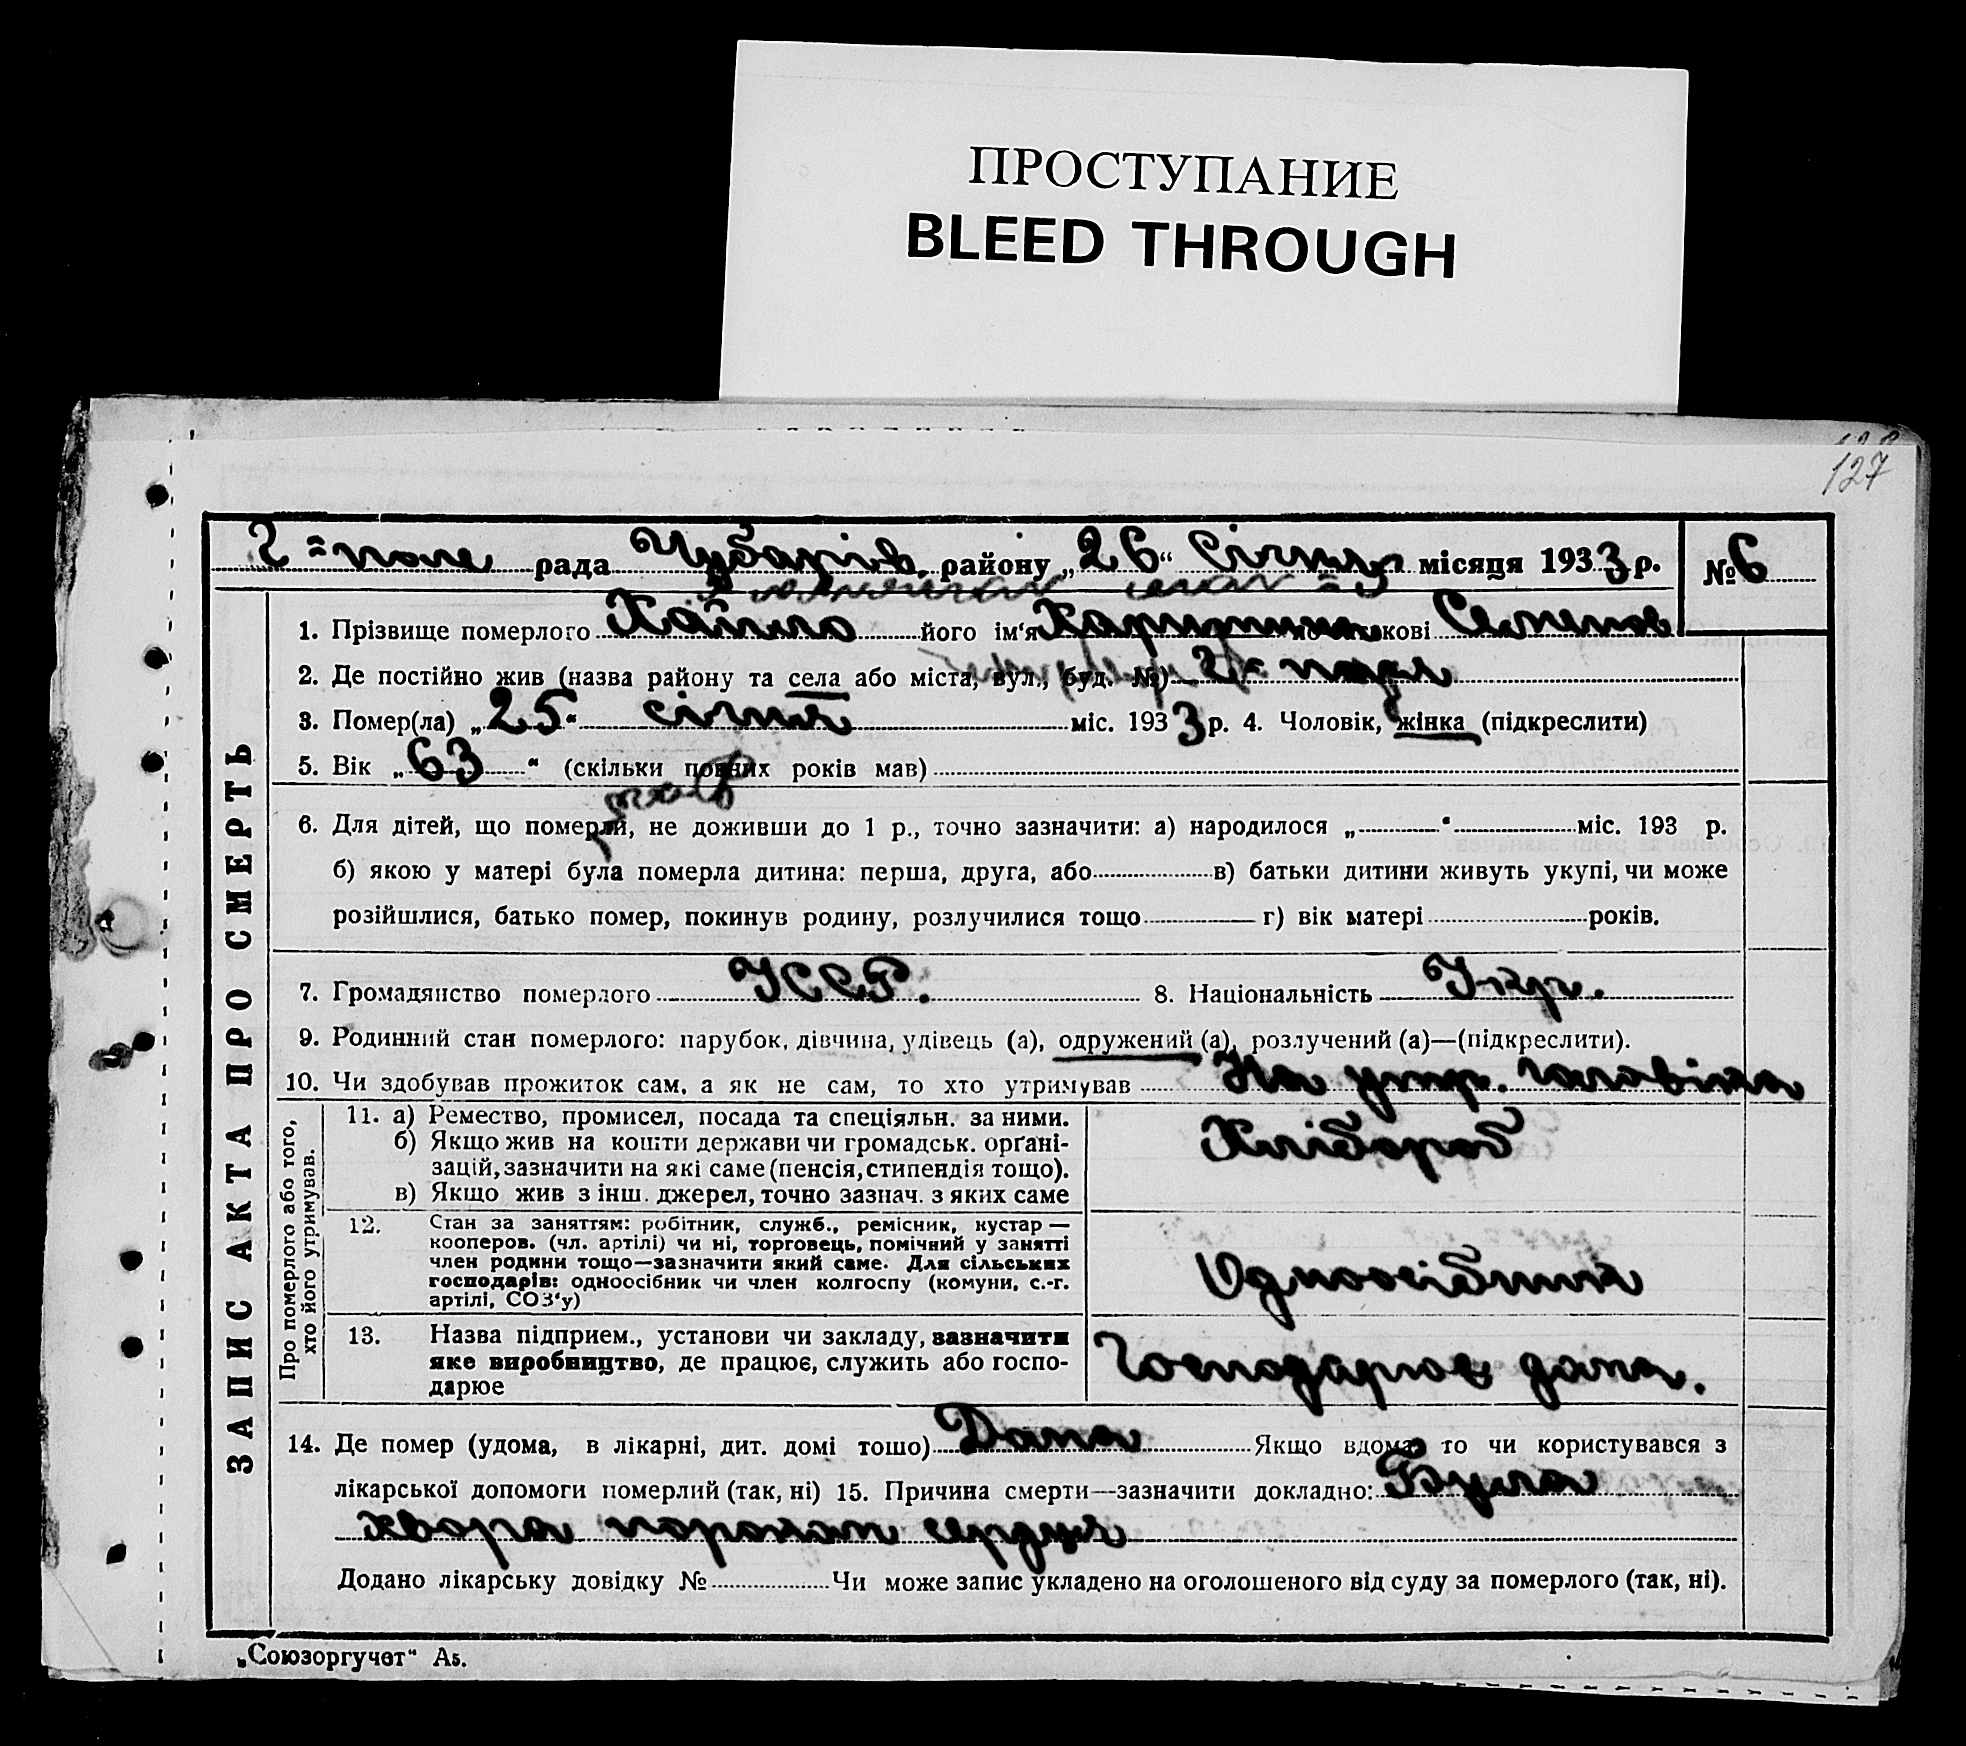 ПРОСТУПАНИЕ
BLEED THROUGH
127
Г=поле рада Чубарів. району „26“ Січня місяця 1933 р. № 6
ЗАПИС АКТА ПРО СМЕРТЬ
1. Прізвище померлого його ім'я кові Семенов
2. Де постійно жив (назва району та села або міста, вул., буд. №) Г=поля
3. Помер(ла) „25“ січня міс. 1933 р. 4. Чоловік, жінка (підкреслити)
5. Вік „63“ (скільки повних років мав)
6. Для дітей, що померли, не доживши до 1 р., точно зазначити: а) народилося „ “ міс. 193 р.
б) якою у матері була померла дитина: перша, друга, або в) батьки дитини живуть укупі, чи може
розійшлися, батько помер, покинув родину, розлучилися тощо г) вік матері років.
7. Громадянство померлого УССР. 8. Національність Укр.
9. Родинний стан померлого: парубок, дівчина, удівець (а), одружений (а), розлучений (а)—(підкреслити).
10. Чи здобував прожиток сам, а як не сам, то хто утримував На утр. чоловіка
Про померлого або того, хто його утримував.
11. а) Ремество, промисел, посада та спеціяльн. за ними.
б) Якщо жив на кошти держави чи громадськ. орґані-
зацій, зазначити на які саме (пенсія, стипендія тощо).
в) Якщо жив з інш. джерел, точно зазнач. з яких саме
Хлібороб
12. Стан за заняттям: робітник, служб., ремісник, кустар —
кооперов. (чл. артілі) чи ні, торговець, помічний у занятті
член родини тощо—зазначити який саме. Для сільських
господарів: одноосібник чи член колгоспу (комуни, с.-г.
артілі, СОЗ'у)
Одноосібник
13. Назва підприєм., установи чи закладу, зазначити
яке виробництво, де працює, служить або госпо-
дарює
Господарює дома.
14. Де помер (удома, в лікарні, дит. домі тошо) Дома Якщо вдома, то чи користувався з
лікарської допомоги померлий (так, ні) 15. Причина смерти—зазначити докладно: Була
хвора пороком сердця
Додано лікарську довідку № Чи може запис укладено на оголошеного від суду за померлого (так, ні).
„Союзоргучет“ А5.